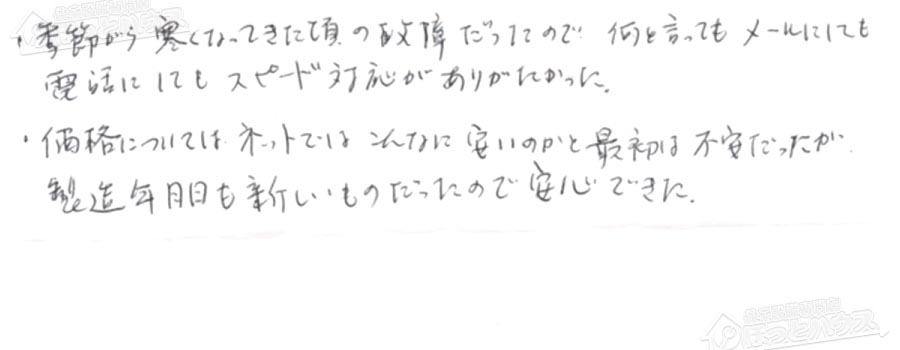 ・季節がら寒くなってきた頃の故障だったので 何と言ってもメールにしても
電話にしてもスピード対応がありがたかった。
・価格については ネットでは こんなに安いのかと最初は不安だったが
製造年月日も新しいものだったので安心できた。
ほっとハウス